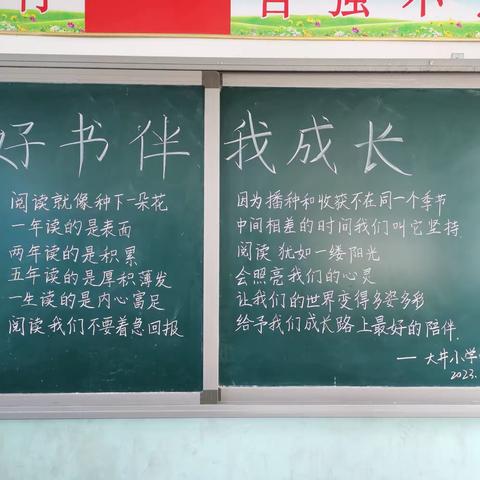 自强不
好书伴 我成长
阅读就像种下一朵花
一年读的是表面
两年读的是积累
五年读的是厚积薄发
一生读的是内心富足
阅读 我们不要着急回报
因为播种和收获不在同一个季节
中间相差的时间我们叫它坚持
阅读 犹如一缕阳光
会照亮我们的心灵
让我们的世界变得多姿多彩
给予我们成长路上最好的陪伴.
——大井小学
2023.